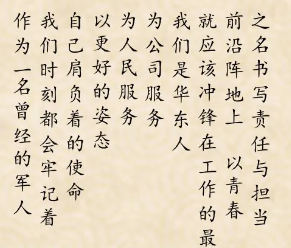 作为一名曾经的军人
我们时刻都会牢记着
自己肩负着的使命
以更好的姿态
为人民服务
为公司服务
我们是华东人
就应该冲锋在工作的最
前沿阵地上 以青春
之名书写责任与担当